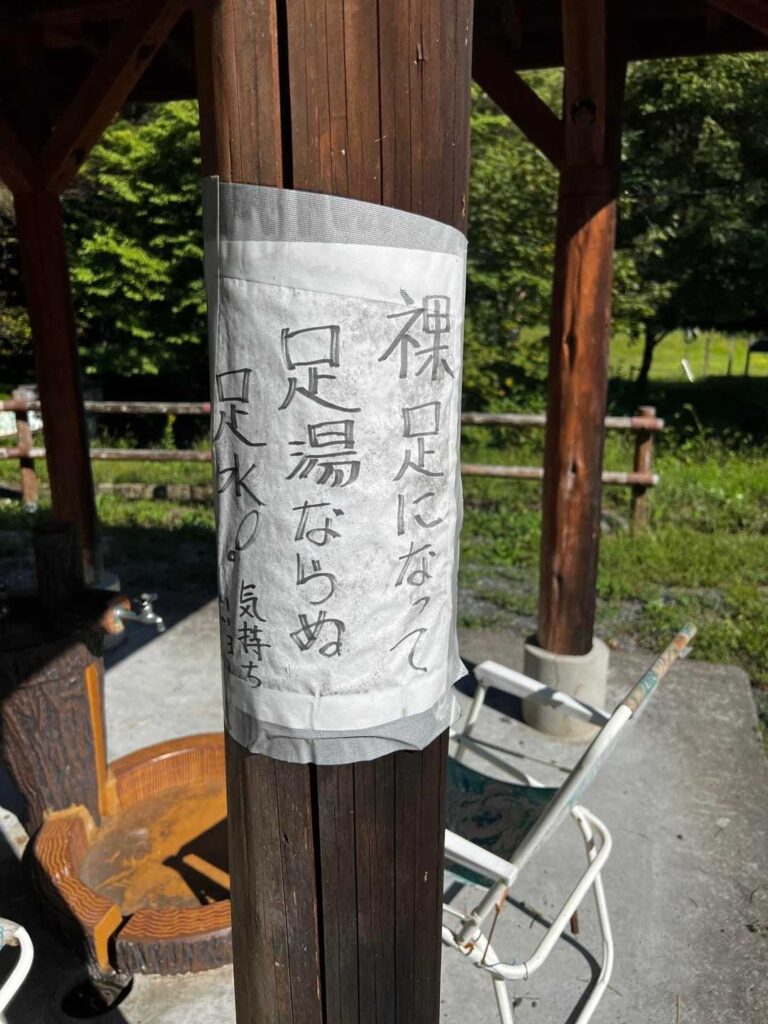 裸足になって
足湯ならぬ
足水!。
気持ち
いいヨ